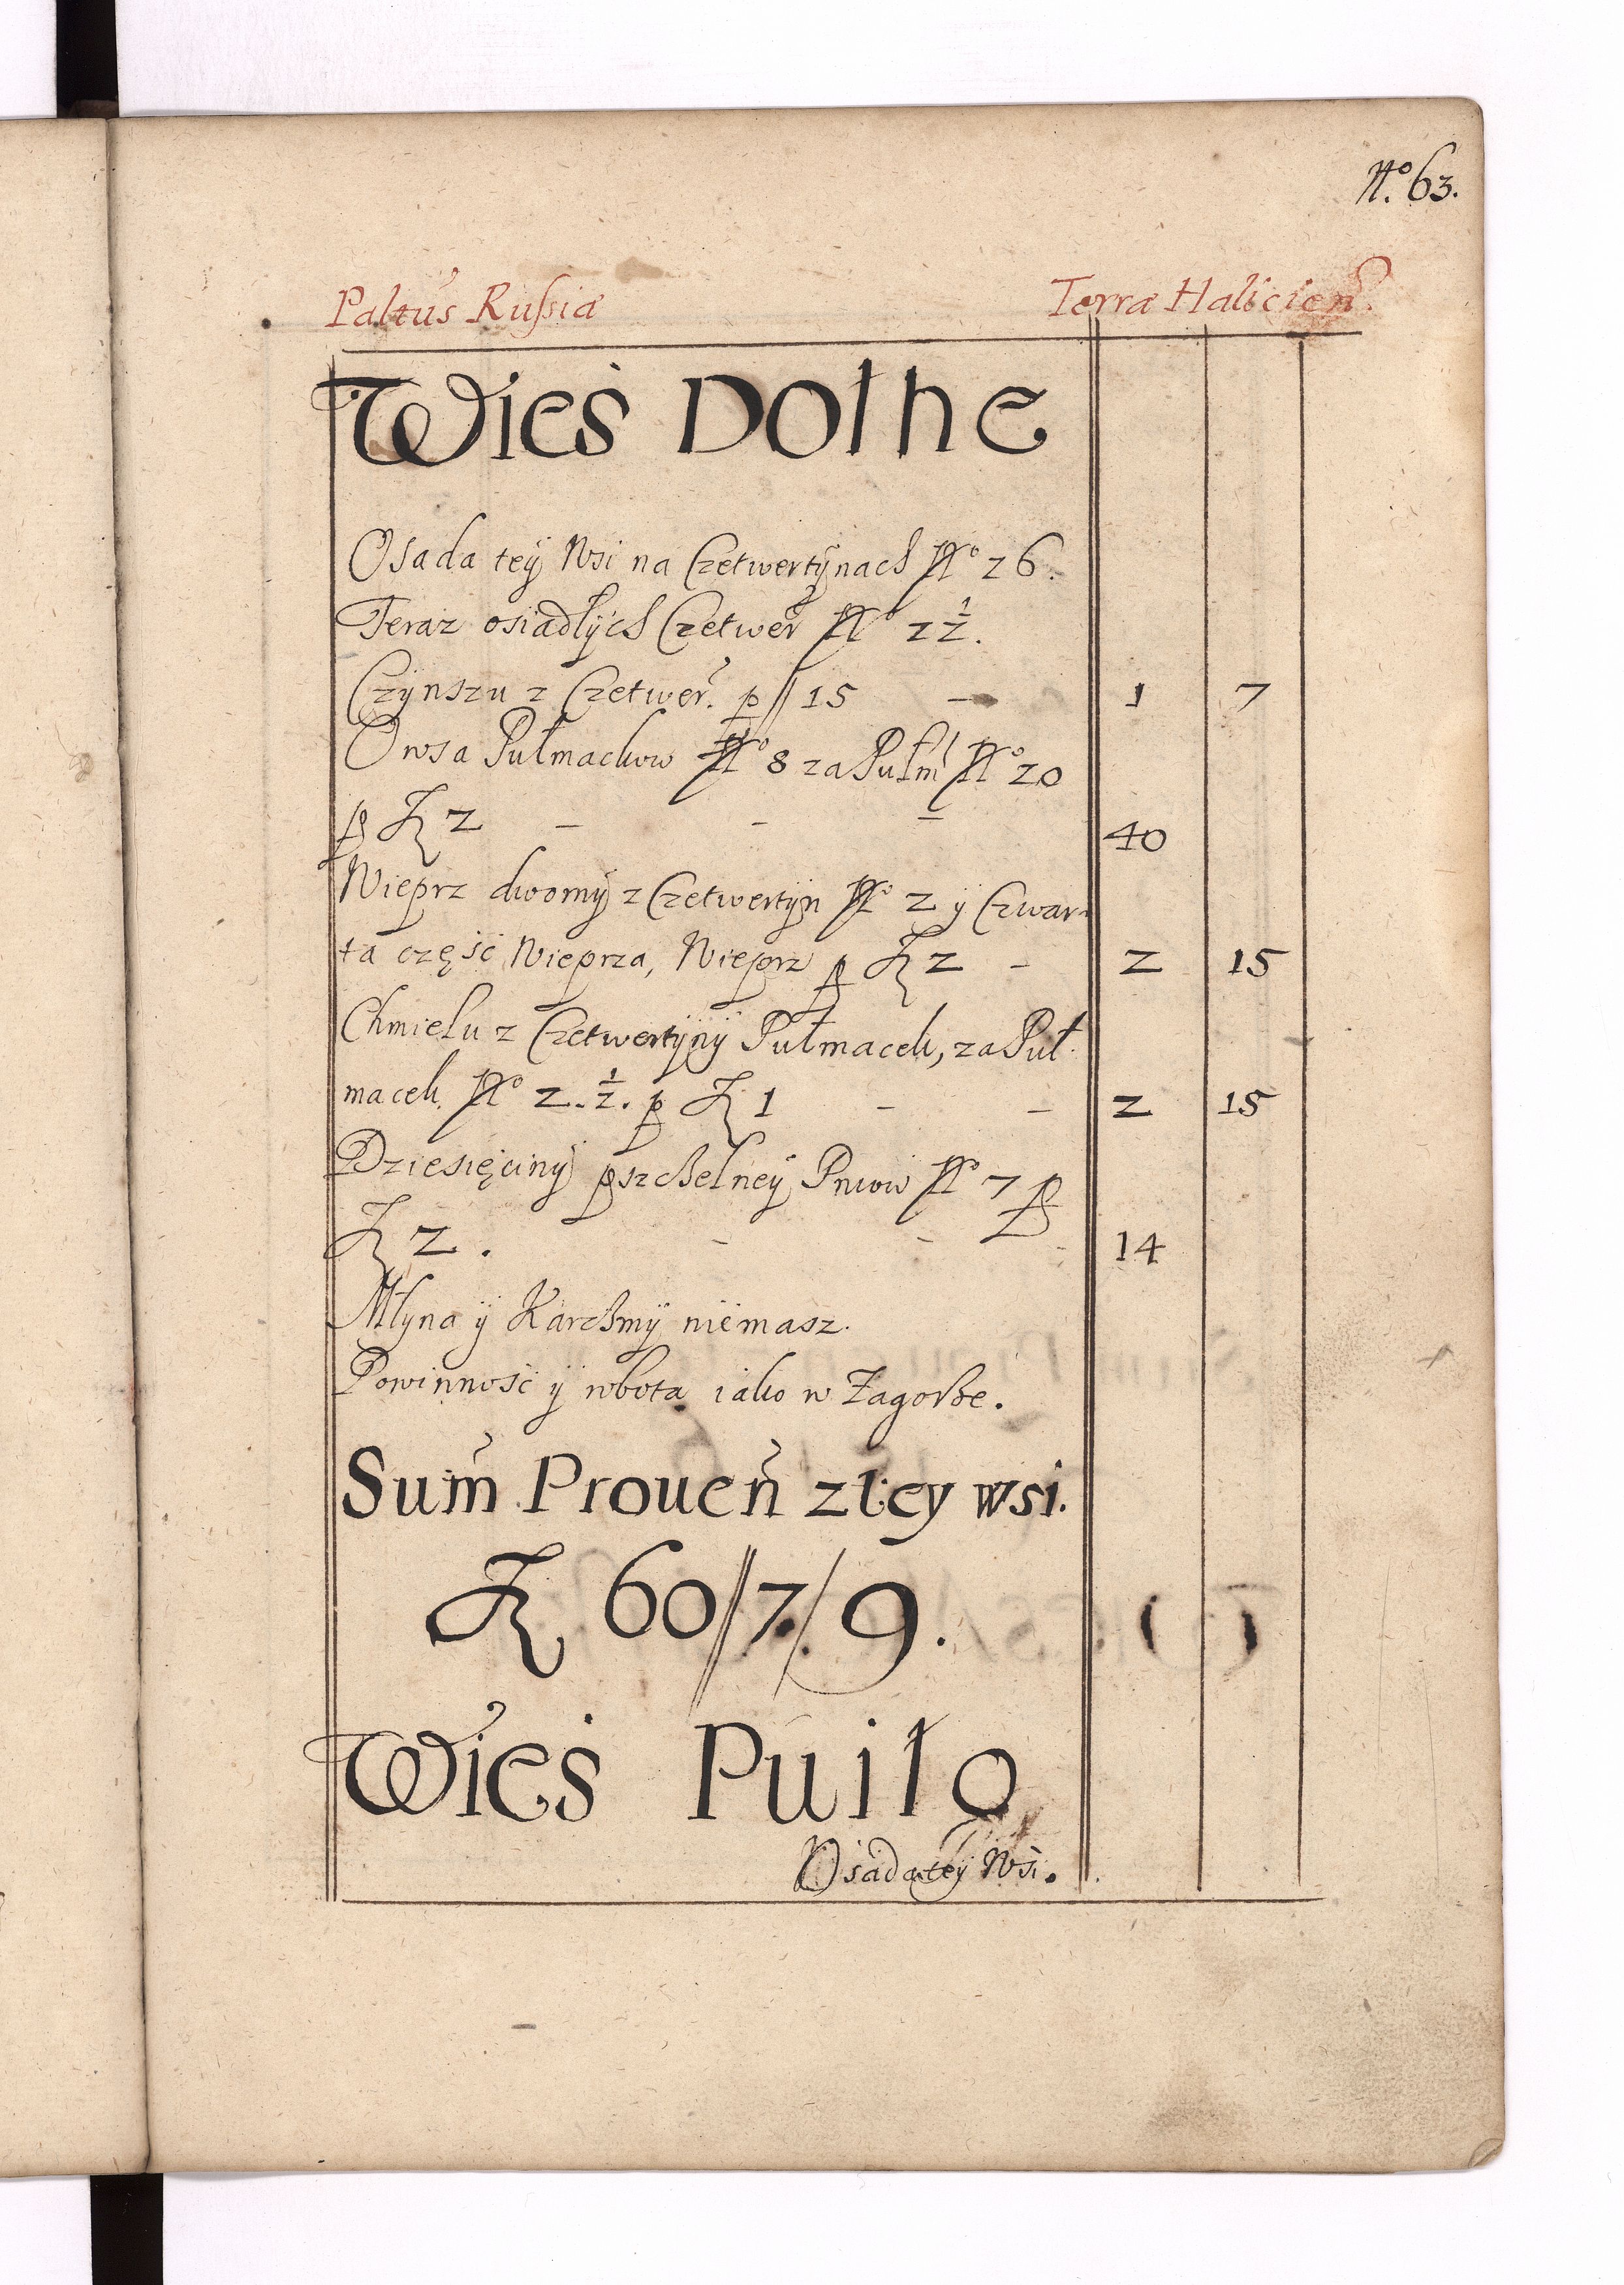 No. 63.
Paltus Russiæ Terræ Halicien.
Wieś Dołhe
Osada tey Wsi na Czetwertynach No 26.
Teraz osiadłÿch Czetwer No 2 1/2.
Czÿnszu z Czetwer. p // 15 — 1 7
Owsa Pułmackow No 8 za Pułm No 20
p Zł 2 — — — 40
Wieprz dwornÿ z Czetwertÿn No 2 ÿ Czwar-
ta część Wieprza, Wieprz p Zł 2 — 2 15
Chmielu z Czetwertÿnÿ Pułmacek, za Puł-
macek. No 2. 1/2. p Zł 1 — — 2 15
Dziesięcinÿ pszczelneÿ Pniow No 7 p
Zł 2. — — — 14
Młyna ÿ Karczmÿ niemasz.
Powinność ÿ robota iako w Zagorze.
Sum Prouen z tey wsi.
Zł 60//7/9.
Wieś Puiło
Osada teÿ Wsi.